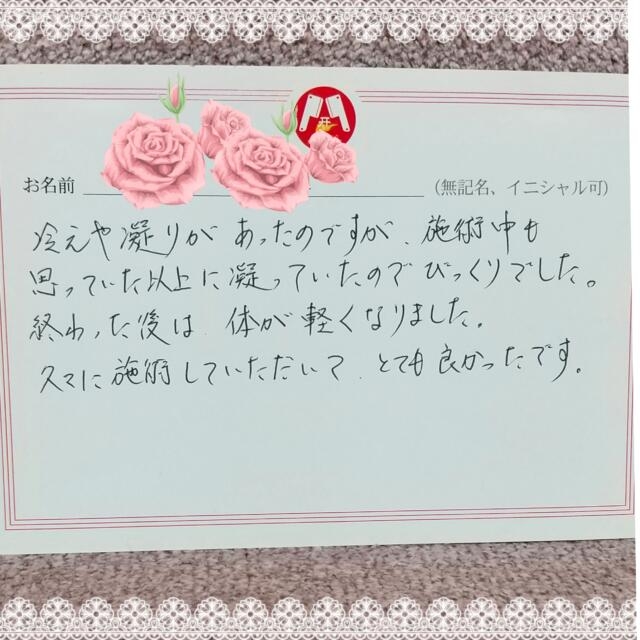 お名前
(無記名、イニシャル可)
冷えや凝りがあったのですが、施術中も
思っていた以上に凝っていたのでびっくりでした。
終わった後は、体が軽くなりました。
久々に施術していただいて、とても良かったです。